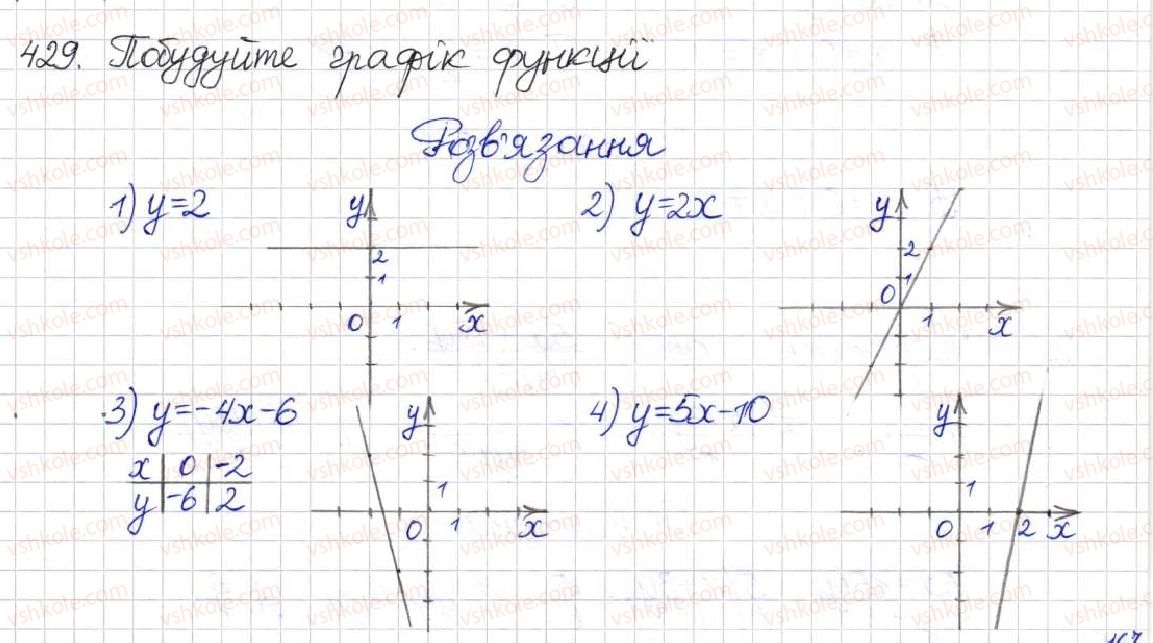 429. Побудуйте графік функції
Розв'язання
1) y=2
y
2
1
0 1 x
2) y=2x
y
2
1
0
1 x
3) y=-4x-6
x | 0 | -2
y | -6 | 2
y
1
0 1 x
4) y=5x-10
y
1
0 1 2 x
167
vshkole.com